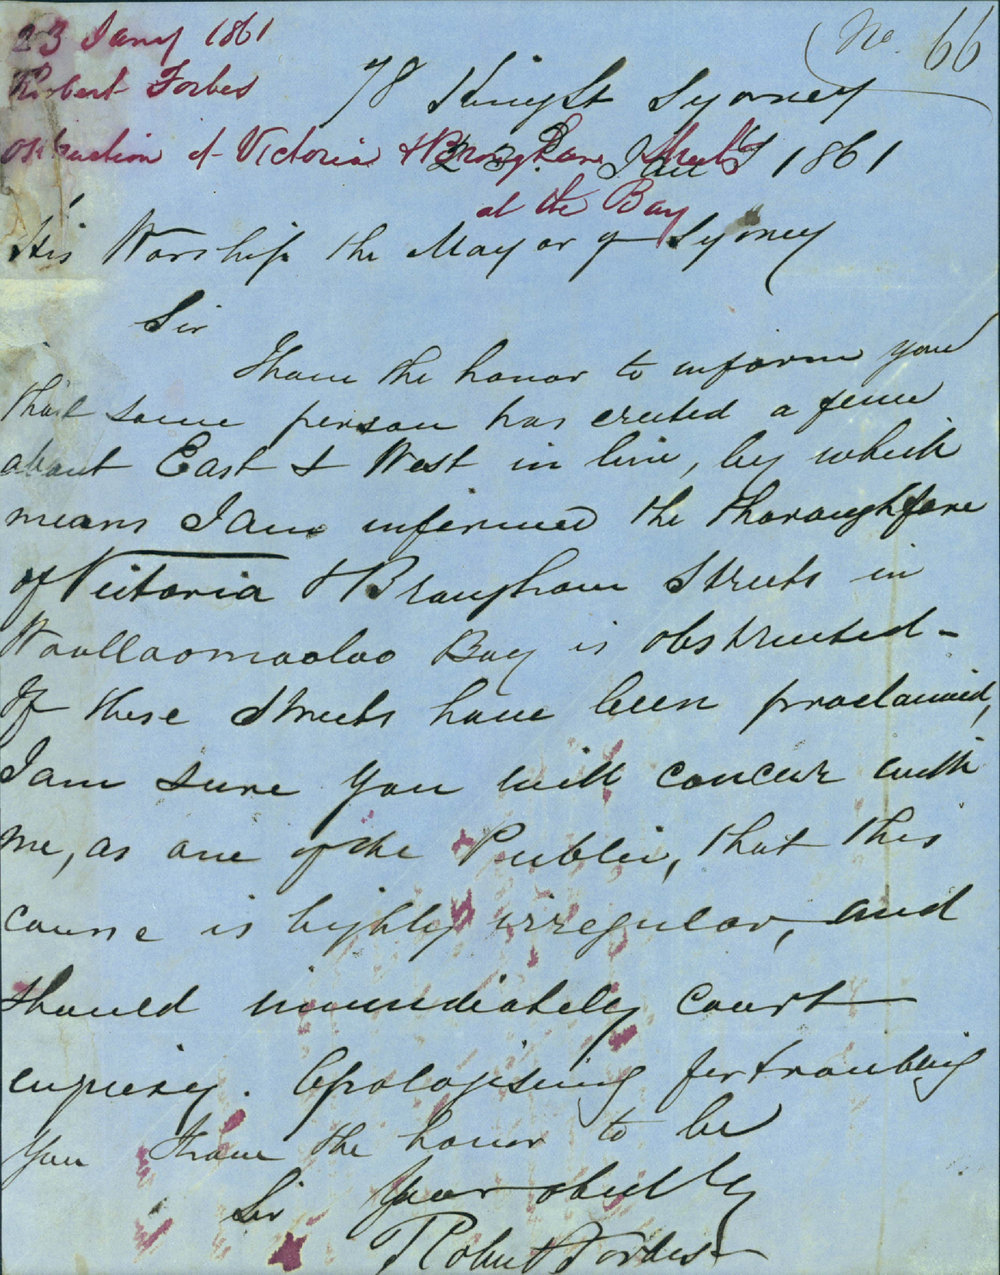 No. 66
23 Jany 1861
Robert Forbes
Obstruction of Victoria & Brougham Streets
at the Bay
78 King St Sydney
23 Jany 1861
His Worship the Mayor of Sydney
Sir
I have the honor to inform you
that some person has erected a fence
about East & West in line, by which
means I am informed the thoroughfare
of Victoria & Brougham Streets in
Woolloomooloo Bay is obstructed -
If these Streets have been proclaimed,
I am sure you will concur with
me, as one of the Public, that this
course is highly irregular, and
should immediately court
enquiry. Apologising for troubling
you I have the honor to be
Sir Your obedtly
Robert Forbes